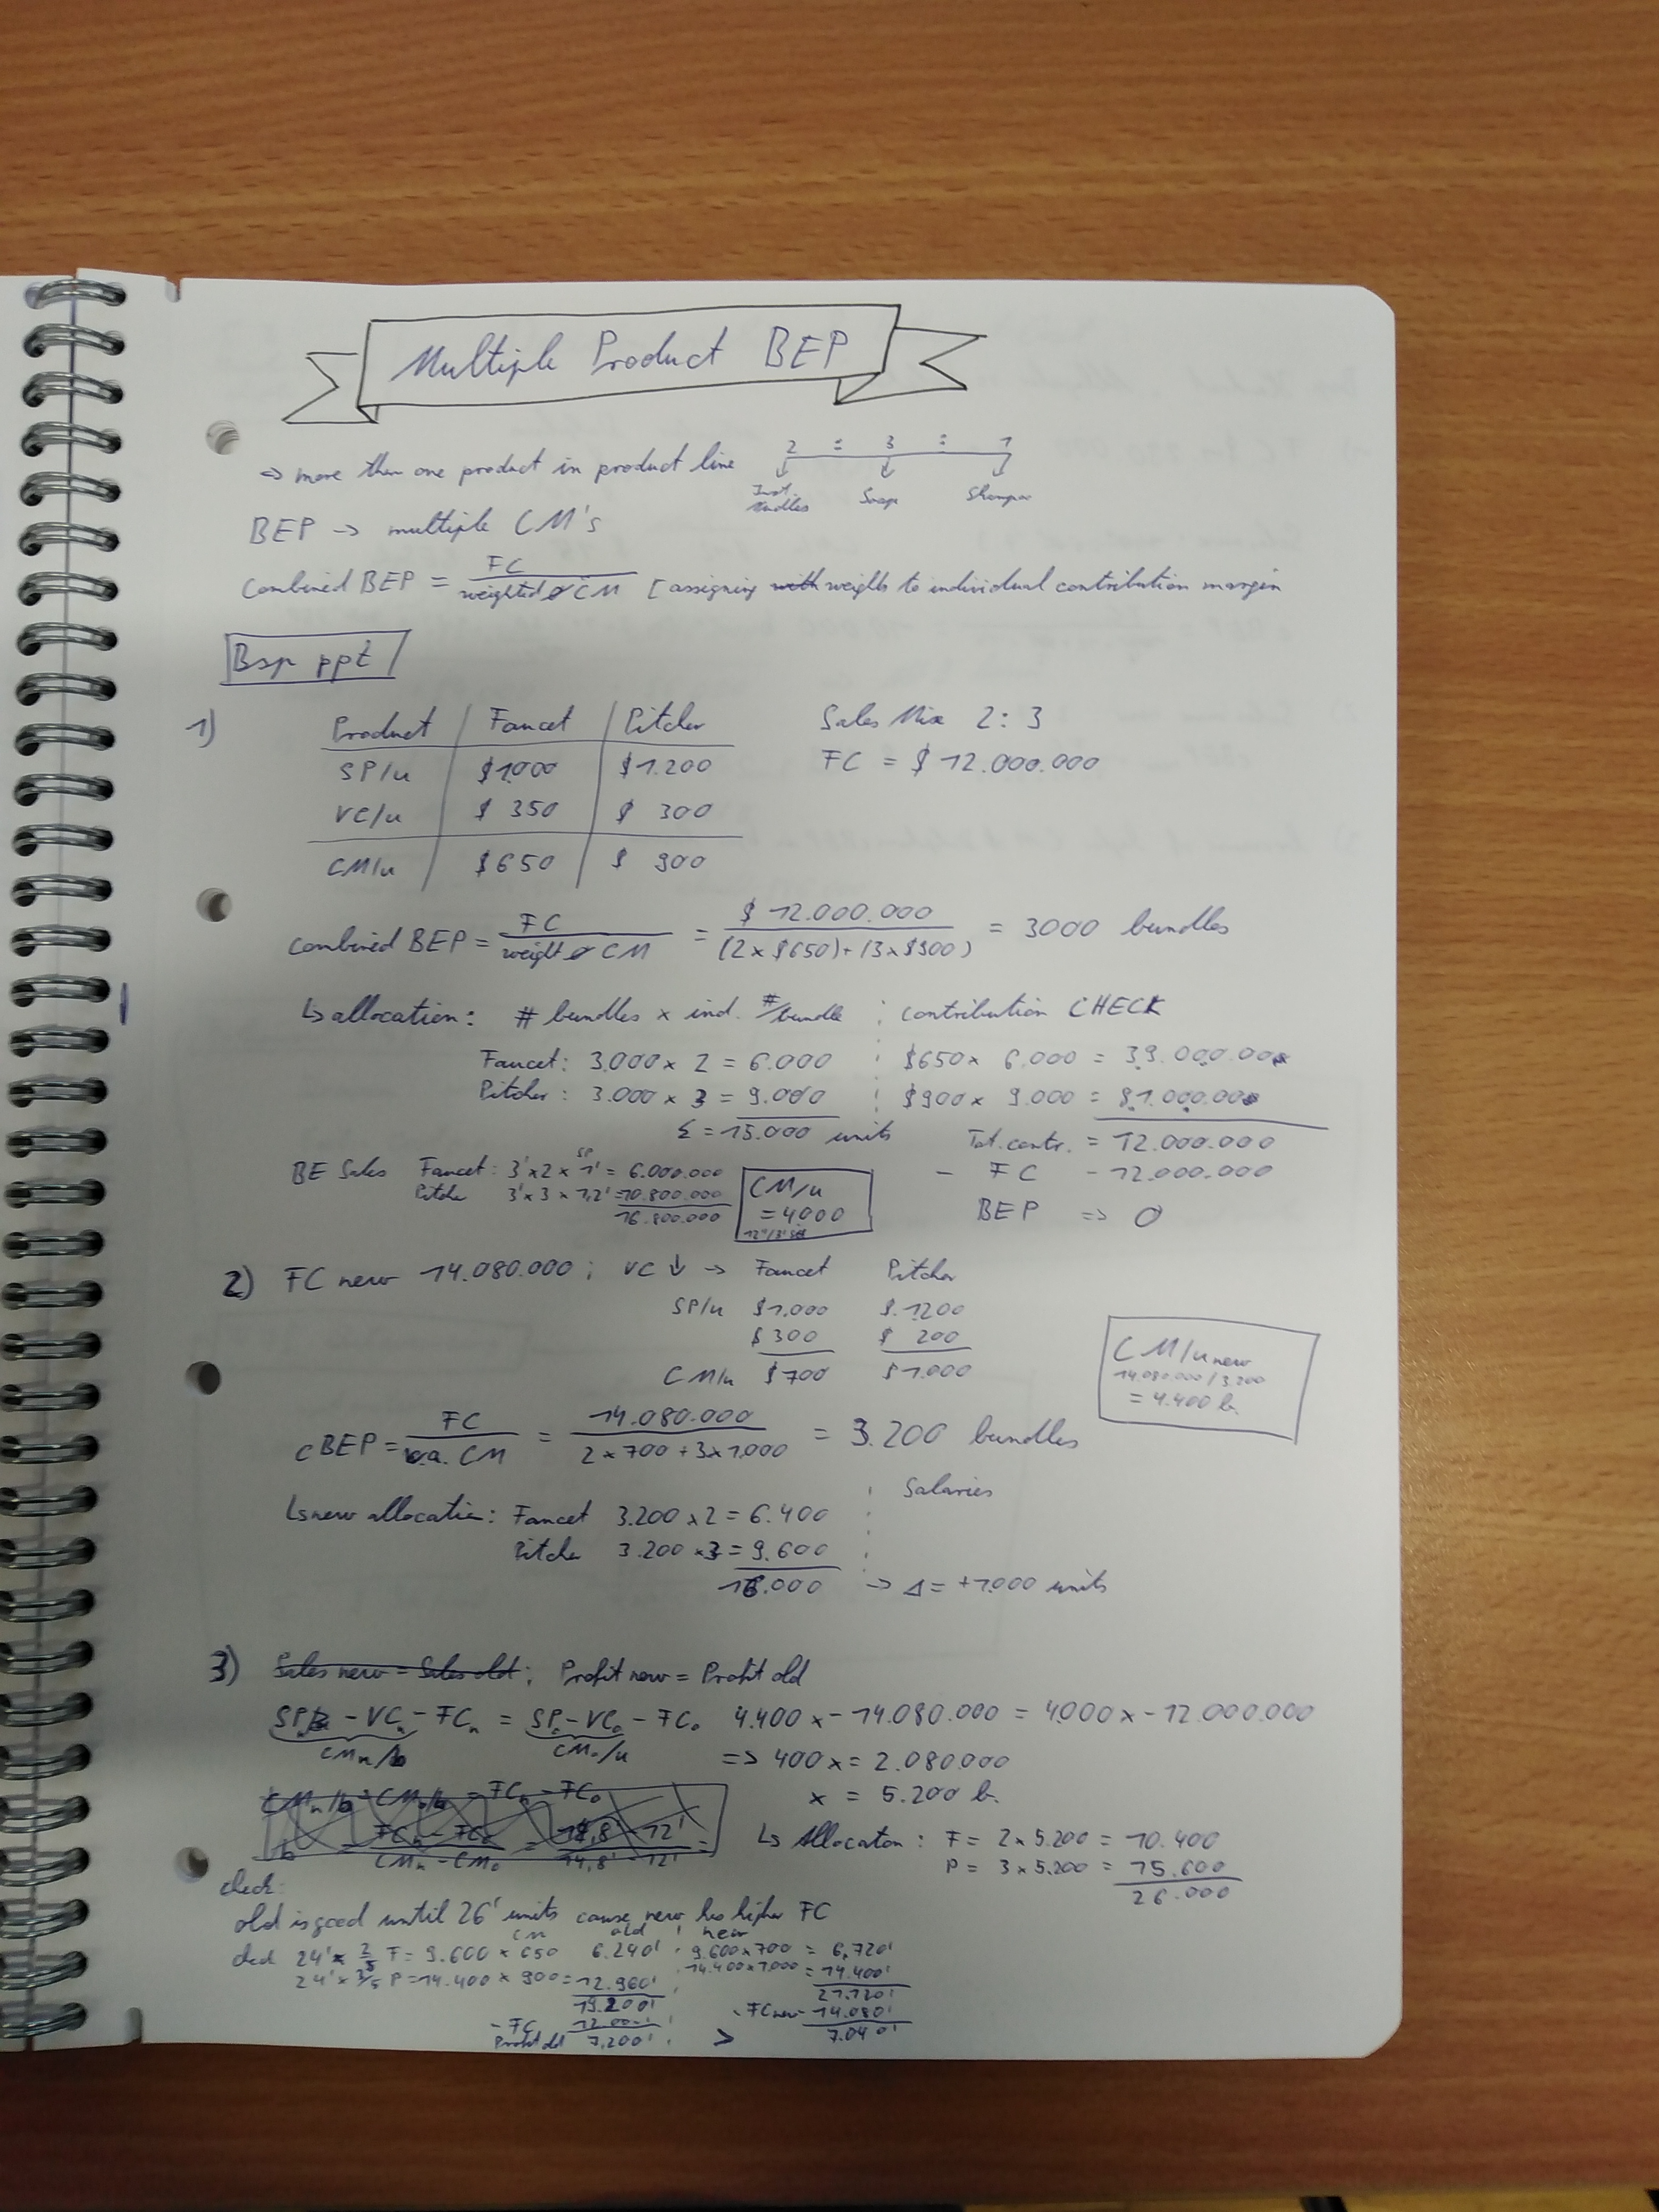 Multiple Product BEP
⇒ more than one product in product line
2 : 3 : 1
Inst. Nudles Soap Shampoo
BEP → multiple CM's
Combined BEP = FC / weighted ø CM [assigning with weights to individual contribution margin
Bsp ppt
1)
Product | Faucet | Pitcher
SP/u | $1.000 | $1.200
VC/u | $ 350 | $ 300
CM/u | $650 | $ 900
Sales Mix 2:3
FC = $ 12.000.000
Combined BEP = FC / weight ø CM = $ 12.000.000 / (2 x $650) + (3 x $900) = 3000 bundles
↳ allocation: # bundles x ind. #/bundle
Faucet: 3.000 x 2 = 6.000
Pitcher: 3.000 x 3 = 9.000
Σ = 15.000 units
contribution CHECK
$650 x 6.000 = 3.9.000.00
$900 x 9.000 = 8.1.000.00
Tot. contr. = 12.000.000
- FC - 12.000.000
BEP ⇒ 0
SP
BE Sales Faucet: 3' x 2 x 1' = 6.000.000
Pitcher 3' x 3 x 1,2' = 10.800.000
16.800.000
CM/u
= 4000
2) FC new 14.080.000; VC ↓ → Faucet Pitcher
SP/u $1.000 $.1200
$300 $ 200
CM/u $700 $1.000
CM/u new
14.080.000/3.200
= 4.400 b.
cBEP = FC / w.a. CM = 14.080.000 / 2 x 700 + 3 x 1.000 = 3.200 bundles
Salaries
↳ new allocation: Faucet 3.200 x 2 = 6.400
Pitcher 3.200 x 3 = 9.600
16.000 → Δ = +1.000 units
3) Sales new = Sales old; Profit new = Profit old
SP - VCn - FCn = SPo - VCo - FCo 4.400 x - 14.080.000 = 4.000 x - 12.000.000
CMn/b CMo/u ⇒ 400 x = 2.080.000
x = 5.200 b.
CMn/b - CMo/b = FCn - FCo
FCn - FCo / CMn - CMo =
↳ Allocaton: F = 2 x 5.200 = 10.400
P = 3 x 5.200 = 15.600
26.000
check:
old is good until 26' units cause new has higher FC
CM old new
ded 24' x 2/5 F = 9.600 x 650 6.240' 9.600 x 700 = 6,720'
24' x 3/5 P = 14.400 x 900 = 12.960' 14.400 x 1.000 = 14.400'
19.200' 21.120'
- FC 12.000' - FC new - 14.080'
Profit old 7,200' > 7.040'